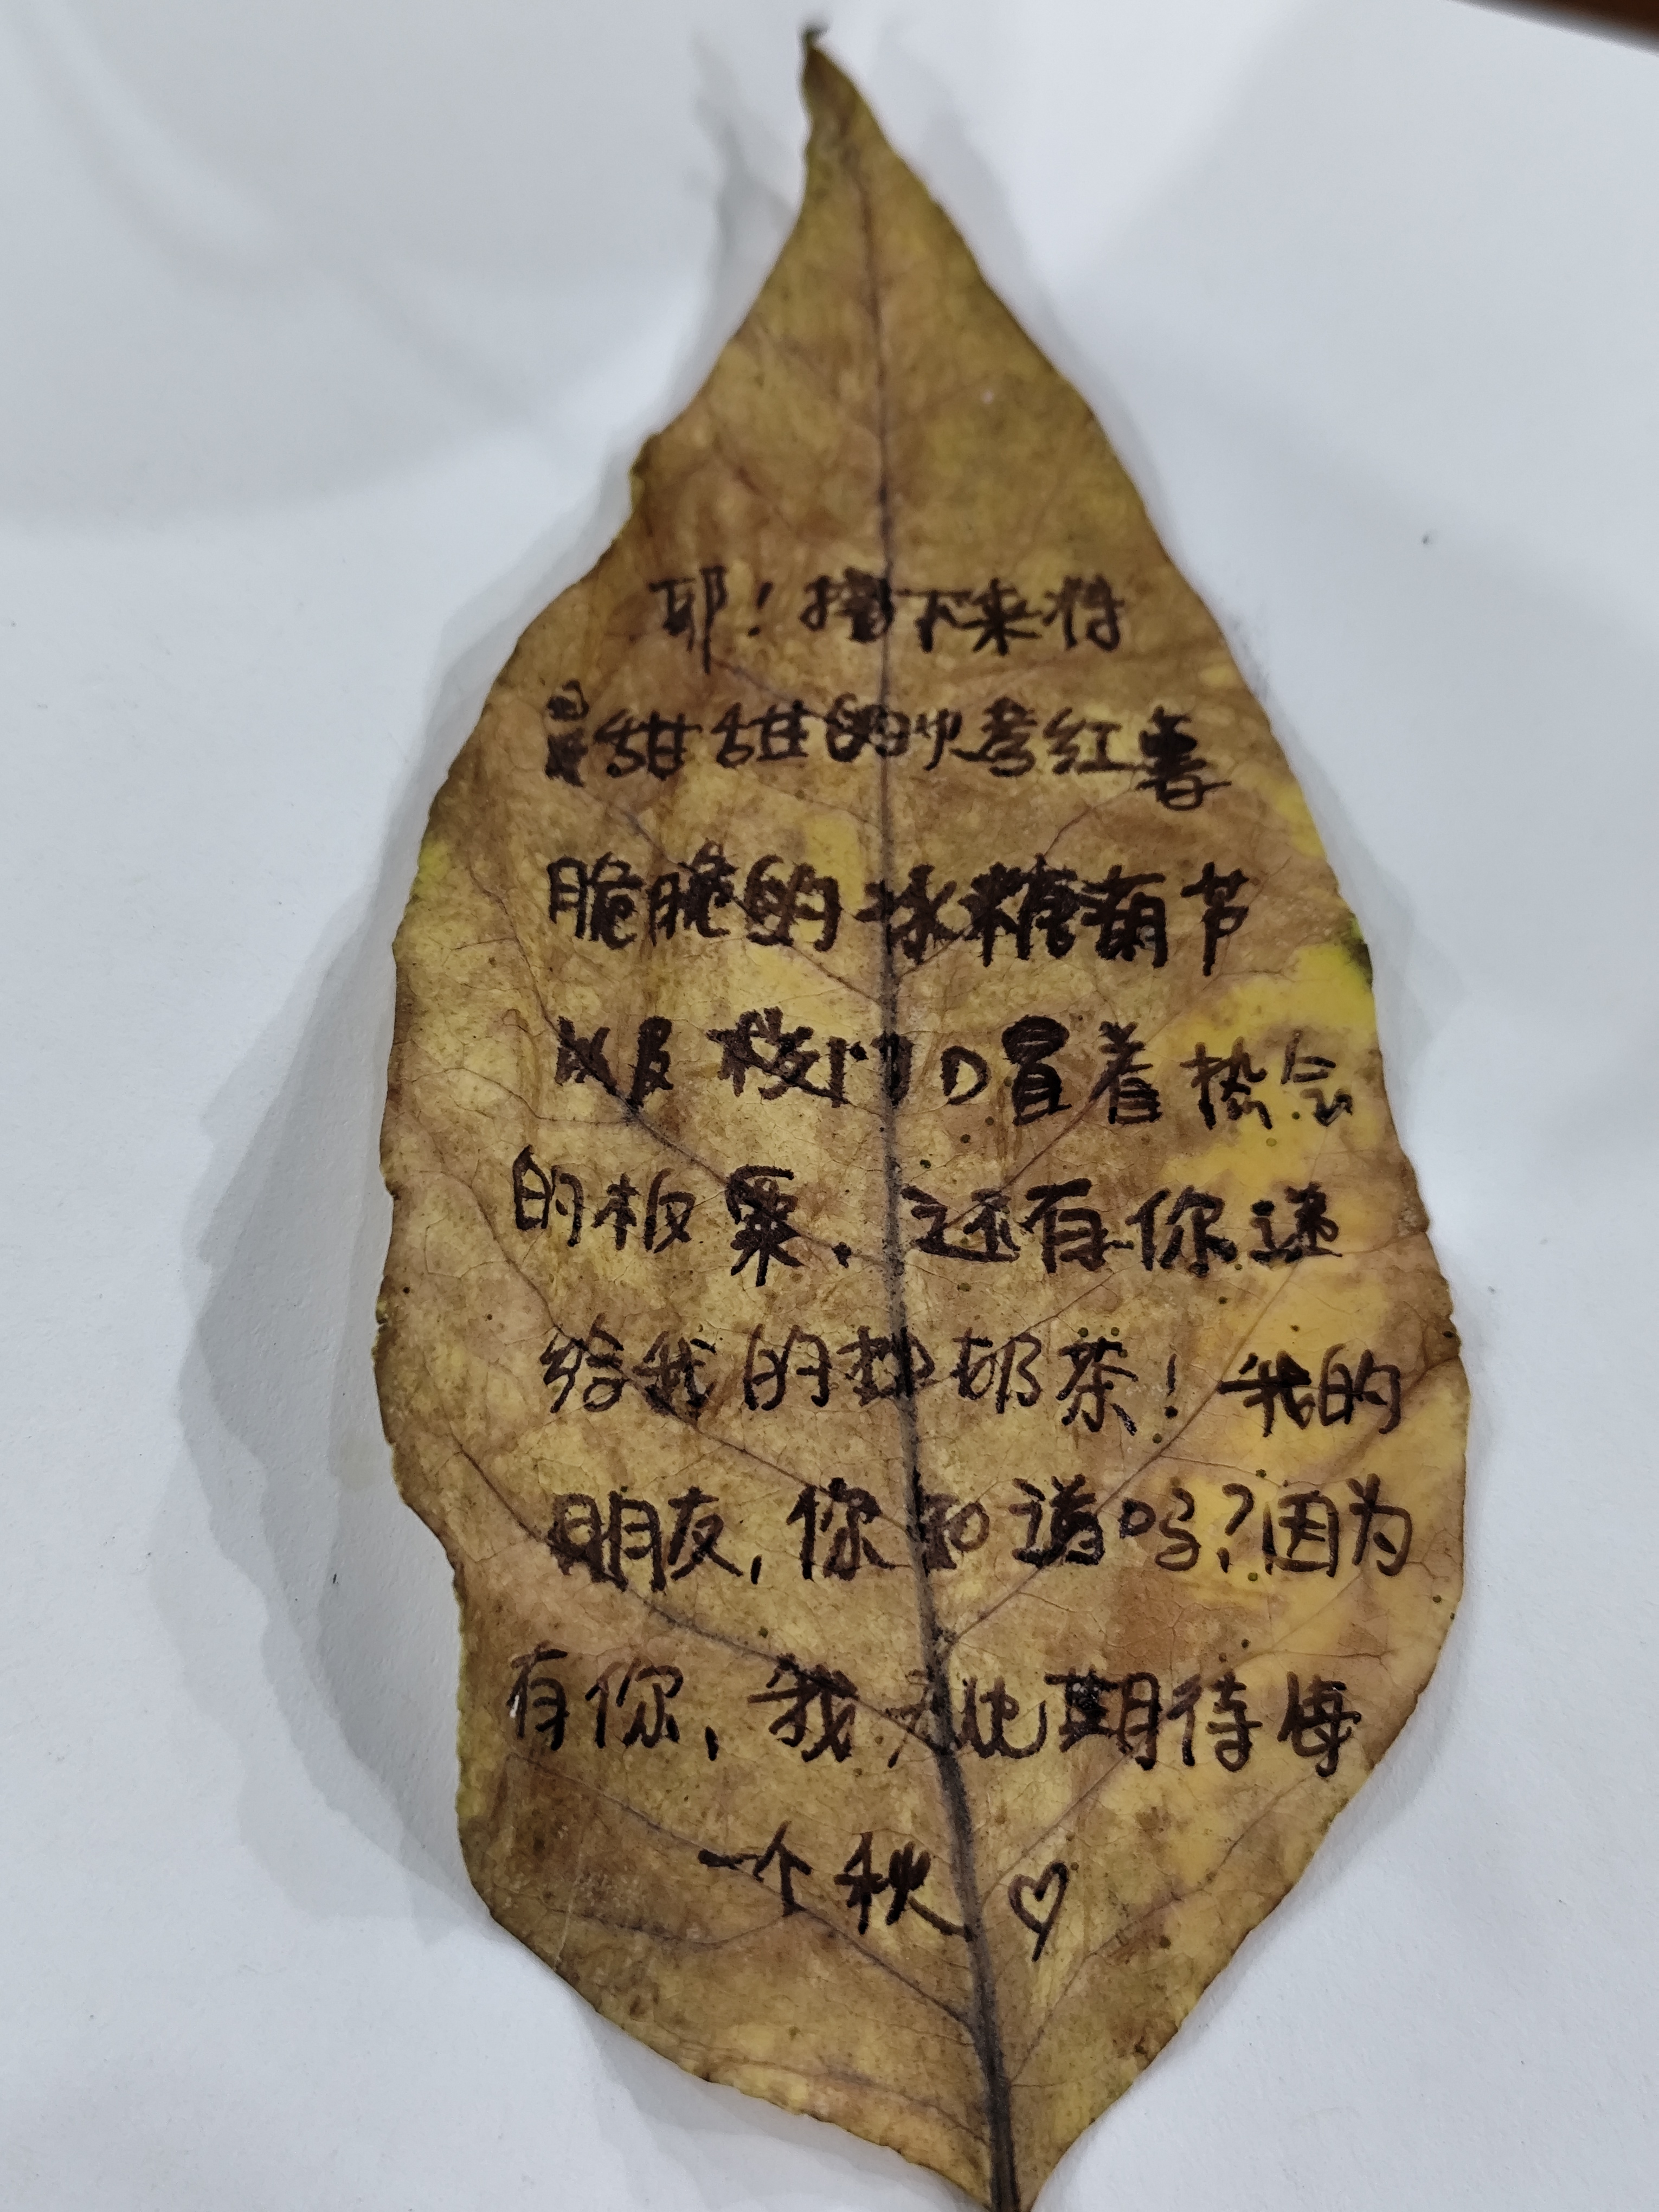 耶！接下来将
是甜甜的烤红薯
脆脆的冰糖葫芦
以及校门口冒着热气
的板栗，还有你递
给我的热奶茶！我的
朋友，你知道吗？因为
有你，我无比期待每
一个秋♡